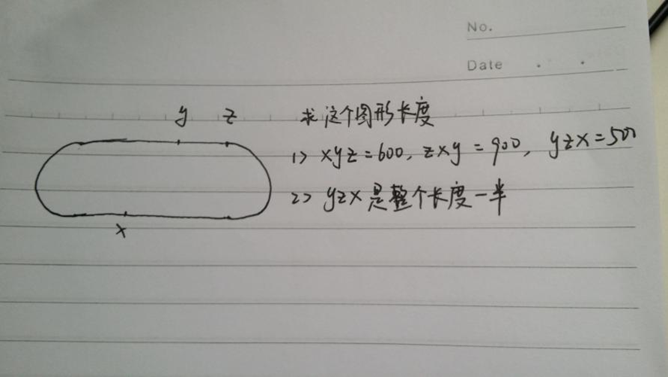 No.
Date . .
y z
求这个图形长度
1> xyz=600, zxy=900, yzx=500
2> yzx是整个长度一半
x